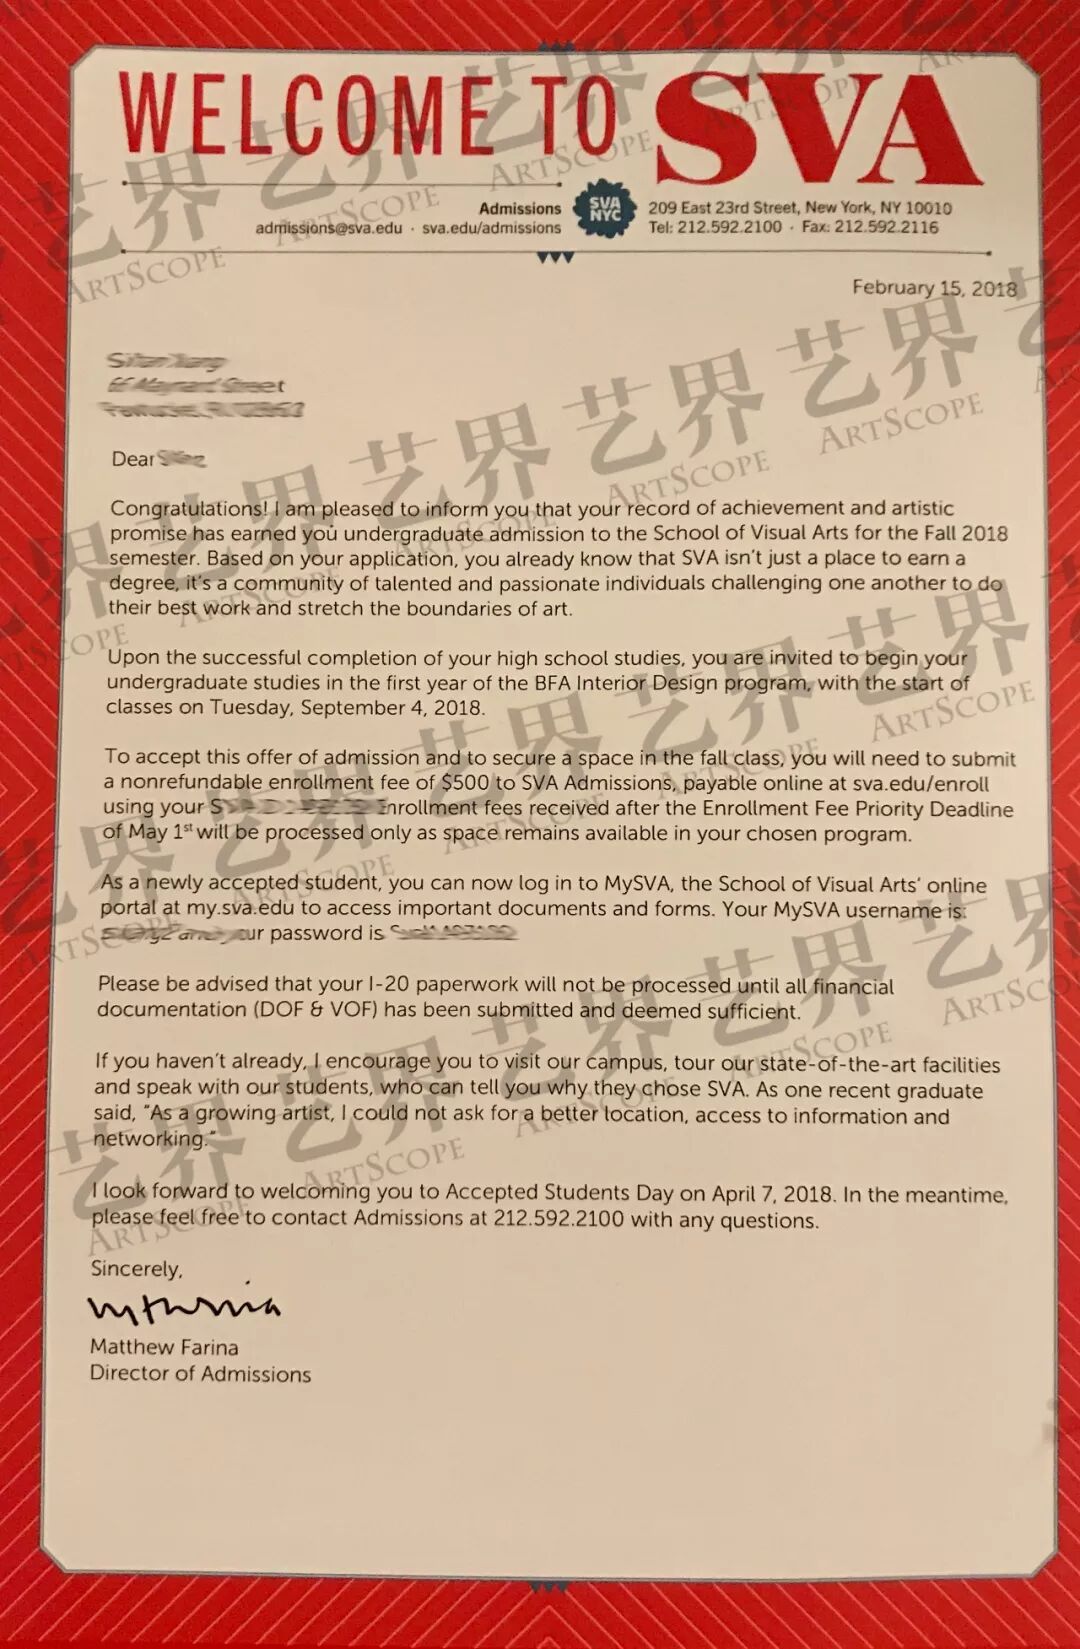 WELCOME TO SVA
Admissions
admissions@sva.edu · sva.edu/admissions
SVA
NYC
209 East 23rd Street, New York, NY 10010
Tel: 212.592.2100 · Fax: 212.592.2116
February 15, 2018
Dear
Congratulations! I am pleased to inform you that your record of achievement and artistic
promise has earned you undergraduate admission to the School of Visual Arts for the Fall 2018
semester. Based on your application, you already know that SVA isn't just a place to earn a
degree, it's a community of talented and passionate individuals challenging one another to do
their best work and stretch the boundaries of art.
Upon the successful completion of your high school studies, you are invited to begin your
undergraduate studies in the first year of the BFA Interior Design program, with the start of
classes on Tuesday, September 4, 2018.
To accept this offer of admission and to secure a space in the fall class, you will need to submit
a nonrefundable enrollment fee of $500 to SVA Admissions, payable online at sva.edu/enroll
using your Enrollment fees received after the Enrollment Fee Priority Deadline
of May 1st will be processed only as space remains available in your chosen program.
As a newly accepted student, you can now log in to MySVA, the School of Visual Arts' online
portal at my.sva.edu to access important documents and forms. Your MySVA username is:
password is
Please be advised that your I-20 paperwork will not be processed until all financial
documentation (DOF & VOF) has been submitted and deemed sufficient.
If you haven't already, I encourage you to visit our campus, tour our state-of-the-art facilities
and speak with our students, who can tell you why they chose SVA. As one recent graduate
said, "As a growing artist, I could not ask for a better location, access to information and
networking."
I look forward to welcoming you to Accepted Students Day on April 7, 2018. In the meantime,
please feel free to contact Admissions at 212.592.2100 with any questions.
Sincerely,
Matthew Farina
Director of Admissions
艺界
ARTSCOPE